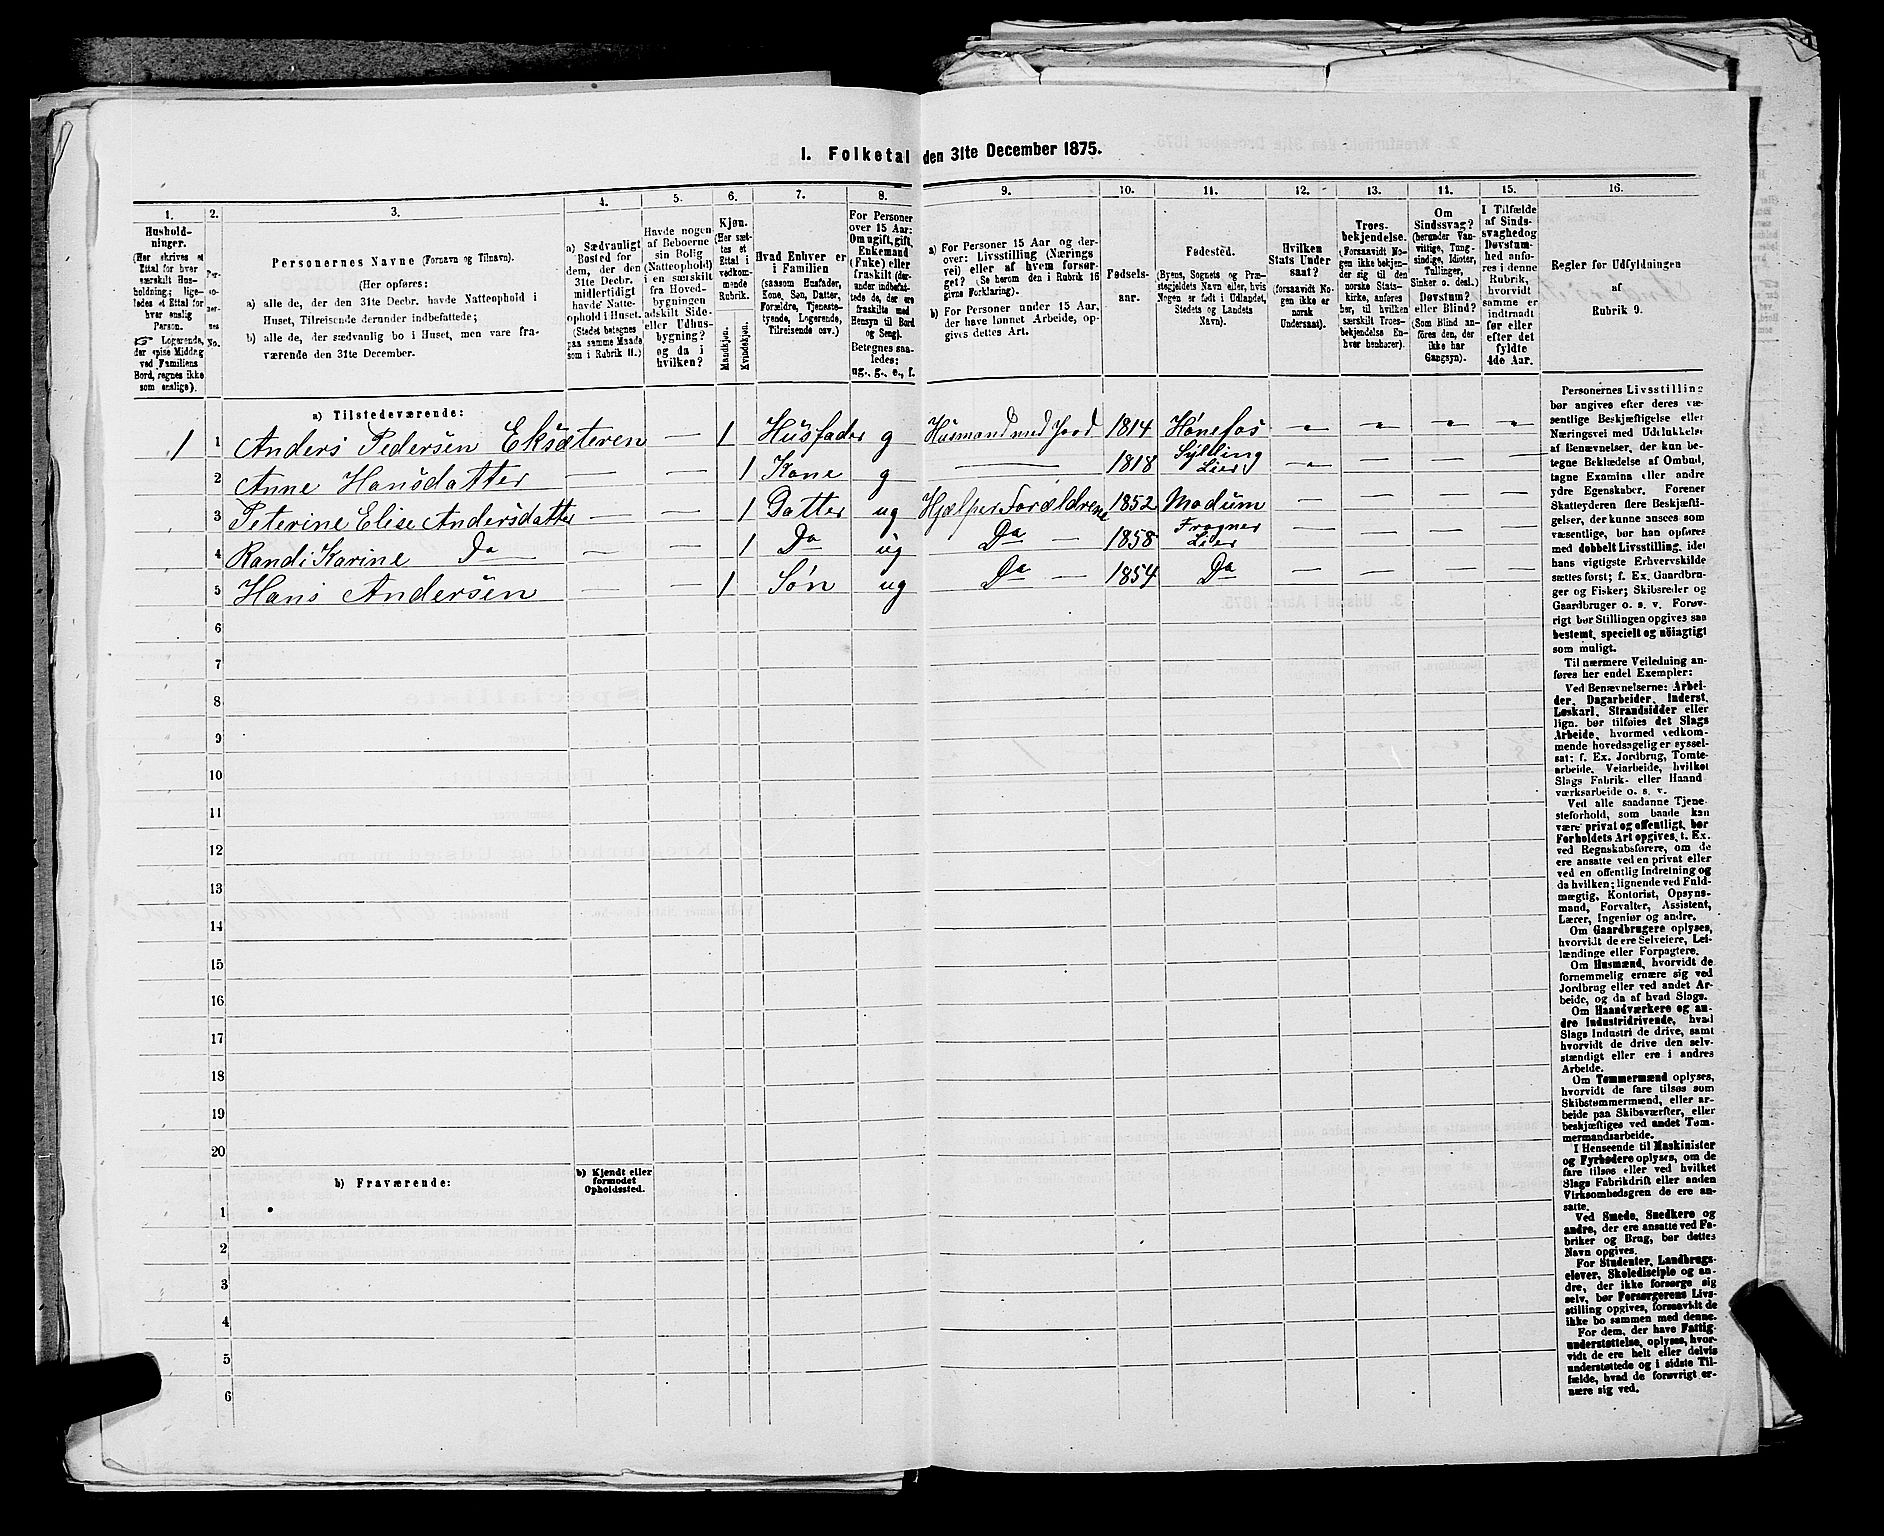 I. Folketal den 31te December 1875.
1. 2. 3. 4. 5. 6. 7. 8. 9. 10. 11. 12. 13. 14. 15. 16.
Hushold-
ninger.
(Her skrives et
Ettal for hver
særskilt Hus-
holdning; lige-
ledes et Ettal for
hver enslig
Person.
Logerende,
der spise Middag
ved Familiens
Bord, regnes ikke
som enslige).
Per-
so-
ner-
nes
No.
Personernes Navne (Fornavn og Tilnavn).
(Her opføres:
a) alle de, der den 31te Decbr. havde Natteophold i
Huset, Tilreisende derunder indbefattede;
b) alle de, der sædvanlig bo i Huset, men vare fra-
værende den 31te December.
a) Sædvanligt
Bosted for
dem, der den
31te Decbr.
midlertidigt
havde Natte-
ophold i Huset.
(Stedet betegnes
paa samme Maade
som i Rubrik 11.)
Havde nogen
af Beboerne
sin Bolig
(Natteophold)
i en særskilt
fra Hoved-
bygningen
adskilt Side-
eller Udhus-
bygning?
og da i
hvilken?
Kjøn.
(Her sæt-
tes et
Ettal i
vedkom-
mende
Rubrik.
Mandkjøn.
Kvindekjøn.
Hvad Enhver er
i Familien
(saasom Husfader,
Kone, Søn, Datter,
Forældre, Tjeneste-
tyende, Logerende,
Tilreisende osv.)
For Personer
over 15 Aar:
Om ugift, gift,
Enkemand
(Enke) eller
fraskilt (der-
under indbefat-
tede de, der ere
fraskilte med
Hensyn til Bord
og Seng).
Betegnes saa-
ledes:
ug., g., e., f.
a) For Personer 15 Aar og der-
over: Livsstilling (Nærings-
vei) eller af hvem forsør-
get? (Se herom den i Rubrik 16
givne Forklaring).
b) For Personer under 15 Aar,
der have lønnet Arbeide, op-
gives dettes Art.
Fødsels-
aar.
Fødested.
(Byens, Sognets og Præ-
stegjeldets Navn eller, hvis
Nogen er født i Udlandet,
Stedets og Landets
Navn).
Hvilken
Stats Under
saat?
(forsaavidt No-
gen ikke er
norsk
Undersaat).
Troes-
bekjendelse.
(Forsaavidt No-
gen ikke bekjen-
der sig til den
norske Stats-
kirke, anføres
her, til hvilken
særskilt Troes-
bekjendelse En-
hver henhører).
Om
Sindssvag?
(herunder Van-
vittige, Tung-
sindige, Idioter,
Tullinger,
Sinker o. desl.)
Døvstum?
eller Blind?
(Som Blind an-
føres den, der
ikke har
Gangsyn).
I Tilfælde
af Sinds-
svaghed og
Døvstum-
hed anfø-
res i denne
Rubrik,
hvorvidt
samme er
indtraadt
før eller
efter det
fyldte
4de Aar.
Regler for Udfyldningen
af
Rubrik 9.
a) Tilstedeværende:
1 1 Anders Pedersen Eksæteren — 1 Husfader g Husmand med Jord 1814 Hønefos
2 Anne Hansdatter — — 1 Kone g — 1818 Sylling Lier
3 Peterine Elise Andersdatter — — 1 Datter ug Hjælper Forældrene 1852 Modum — — — —
4 Randi Karine Do — — 1 Do ug Do — 1858 Frogner Lier — — — —
5 Hans Andersen — — 1 Søn ug Do — 1854 Do — — — —
6
7
8
9
10
11
12
13
14
15
16
17
18
19
20
b) Fraværende:
b) Kjendt eller
formodet
Opholdssted.
1
2
3
4
5
6
Personernes Livsstilling
bør angives efter deres væ-
sentlige Beskjæftigelse eller
Næringsvei med Udelukkelse
af Benævnelser, der kun be-
tegne Beklædelse af Ombud,
tagne Examina eller andre
ydre Egenskaber. Forener
Skatteyderen flere Beskjæfti-
gelser, der kunne ansees som
væsentlige, bør han opføres
med dobbelt Livsstilling, idet
hans vigtigste Erhvervskilde
sættes først; f. Ex. Gaardbru-
ger og Fisker; Skibsreder og
Gaardbruger o. s. v. Forøv-
rigt bør Stillingen opgives saa
bestemt, specielt og nøiagtigt
som muligt.
Til nærmere Veiledning an-
føres her endel Exempler:
Ved Benævnelserne: Arbei-
der, Dagarbeider, Inderst,
Løskarl, Strandsidder eller
lign. bør tilføies det Slags
Arbeide, hvormed vedkom-
mende hovedsagelig er syssel-
sat; f. Ex. Jordbrug, Tomte-
arbeide, Veiarbeide, hvilket
Slags Fabrik- eller Haand
værksarbeide o. s. v.
Ved alle saadanne Tjene-
steforhold, som baade kan
være privat og offentligt, bør
Forholdets Art opgives, t. Ex.
ved Regnskabsførere, om de
ere ansatte ved en privat eller
ved en offentlig Indretning og
da hvilken; lignende ved Fuld-
mægtig, Kontorist, Opsyns-
mand, Forvalter, Assistent,
Lærer, Ingeniør og andre.
Om Gaardbrugere oplyses,
hvorvidt de ere Selveiere, Lei-
lændinge eller Forpagtere.
Om Husmænd, hvorvidt de
fornemmelig ernære sig ved
Jordbrug eller ved andet Ar-
beide, og da af hvad Slags.
Om Haandværkere og an-
dre Industridrivende, hvad
Slags Industri de drive, samt
hvorvidt de drive den selv-
stændigt eller ere i andres
Arbeide.
Om Tømmermænd oplyses,
hvorvidt de fare tilsøs som
Skibstømmermænd, eller ar-
beide paa Skibsværfter, eller
beskjæftiges ved andet Tøm-
mermandsarbeide.
I Henseende til Maskinister
og Fyrbødere oplyses, om de
fare tilsøs eller ved hvilket
Slags Fabrikdrift eller anden
Virksombedsgren de ere an-
satte.
Ved Smede, Snedkere og
andre, der ere ansatte ved Fa-
briker og Brug, bør dettes
Navn opgives.
For Studenter, Landbrugs-
elever, Skoledisciple og an-
dre, der ikke forsørge sig
selv, bør Forsørgerens Livs-
stilling opgives, forsaavidt de
ikke bo sammen med denne.
For dem, der have Fattig-
understøttelse, oplyses, hvor-
vidt de ere helt eller delvis
understøttede og i sidste Til-
fælde, hvad de forøvrigt er-
nære sig ved.